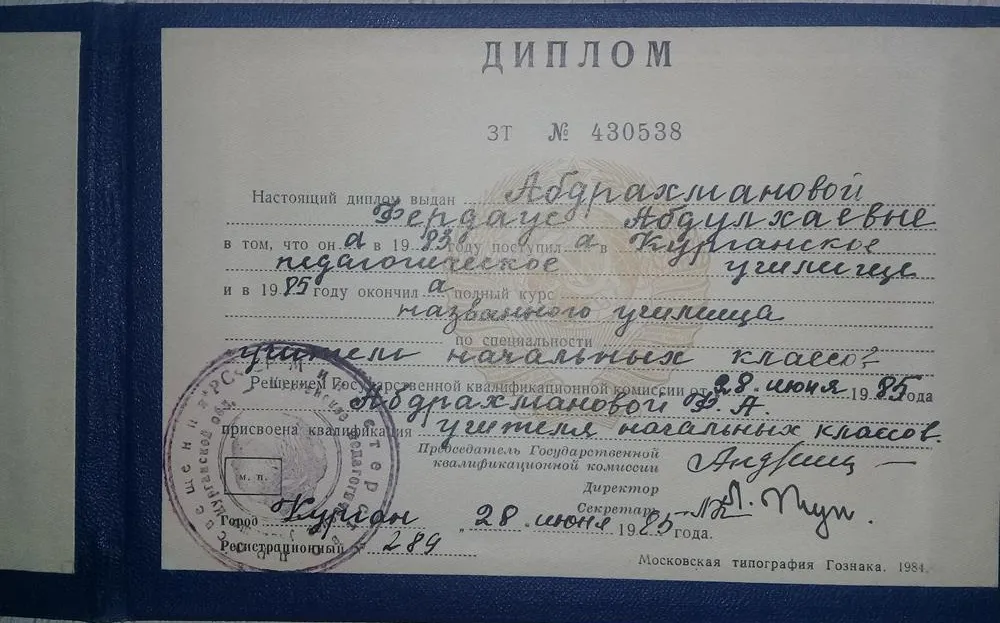 ДИПЛОМ
ЗТ № 430538
Настоящий диплом выдан Абдрахмановой
Фердаус Абдулхаевые
в том, что он а в 19 83 году поступил а в Курганское
педагогическое училище
и в 19 85 году окончил а полный курс
названного училища
по специальности
учитель начальных классов
Решением Государственной квалификационной комиссии от 28 июня 19 85 года
Абдрахмановой Ф. А.
присвоена квалификация учителя начальных классов.
Председатель Государственной
квалификационной комиссии
Директор
Секретарь
м. п.
Город Курган „ 28 . июня 19 85 года.
Регистрационный 289
Московская типография Гознака. 1984.